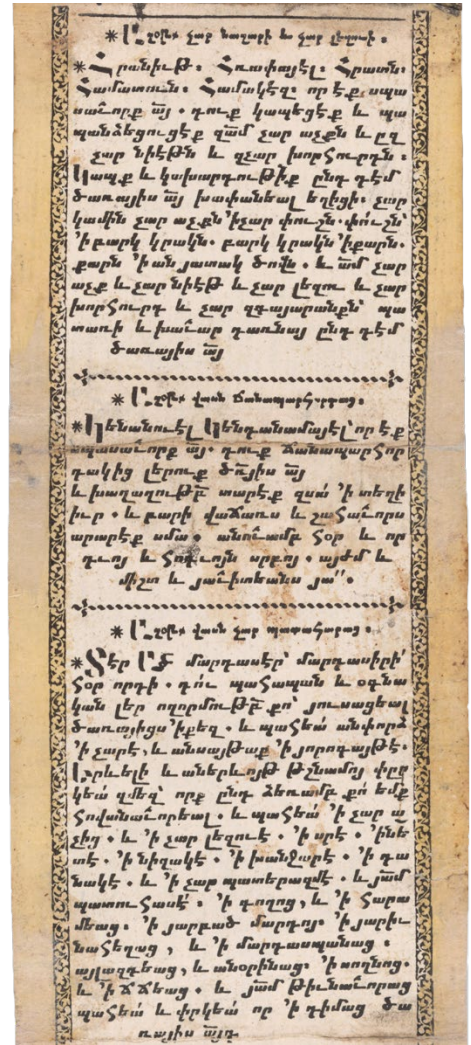 ✳ Աղօթք չար նազարի և չար լեզուի ։
✳ Հրանիւթ։ Հռափայէլ։ Հրատն։
Համատուն։ Համակէզ։ որ էք սպա
սաւորք ա՟յ . դուք կապեցէք և պա
պանձեցուցէք զա՟մ չար աչքն և ըզ
չար նիէթն և զչար խորհուրդն ։
Կապք և կախարդութիք ընդ դէմ
ծառայիս ա՟յ խափանեալ եղիցի։ չար
կամին չար աչքն ՚ի չար փուշն. փուշն՝
՚ի բարկ կրակն. բարկ կրակն ՚ի քարն.
քարն ՚ի անյատակ ծովն . և ա՟մ չար
աչք և չար նիէթ և չար լեզու և չար
խորհուրդ և չար զգայարանքն՝ պա
տառի և խաւար դառնայ ընդ դէմ
ծառայիս ա՟յ
✳ Աղօթք վասն ճանապարհորդաց ։
✳ Կենանուէլ Կենդանամայէլ՝ որ էք
սպասաւորք ա՟յ . դուք ճանապարհոր
դակից լերուք ծա՟յիս ա՟յ
և խաղաղութբ՟ տարէք զսա ՚ի տեղի
իւր . և բարի վաճառս և շահաւորս
արարէք սմա . անուամբ հօր և որ
դւոյ և հոգւոյն սրբոյ . այժմ և
միշտ և յաւիտեանս յա՛՛ .
✳ Աղօթք վասն չար պատահարաց ։
✳ Տէր Ա՟ծ մարդասէր՝ մարդասիրի՝
հօր որդի . դու պահապան և օգնա
կան լեր ողորմութբ՟ քո՝ յուսացեալ
ծառայիցս ՚ի քեզ . և պահեա անփորձ
՚ի չարէ, և անսայթաք ՚ի յորոգայթէ.
Երևելի և աներևոյթ թշնամոյ փրը
կեա զմեզ՝ որք ընդ ձեռամբ քո եմք
հովանաւորեալ . և պահեա ՚ի չար ա
չից . և ՚ի չար լեզուէ . ՚ի սրէ . ՚ի նե
տէ. ՚ի նիզակէ . ՚ի խանչարէ . ՚ի դա
նակէ . և ՚ի չար պատերազմէ . և յա՟մ
պատուհասէ ։ ՚ի գողոց, և ՚ի հարա
մեաց. ՚ի յարբած մարդոյ. ՚ի յարիւ
նահեղաց , և ՚ի մարդասպանաց ։
այլազգեաց, և անօրինաց. ՚ի սողնոց.
և ՚ի ճճեաց . և յա՟մ թիւնաւորաց
պահեա և փրկեա որ ՚ի դիմաց ծա
ռայիս ա՟յդ